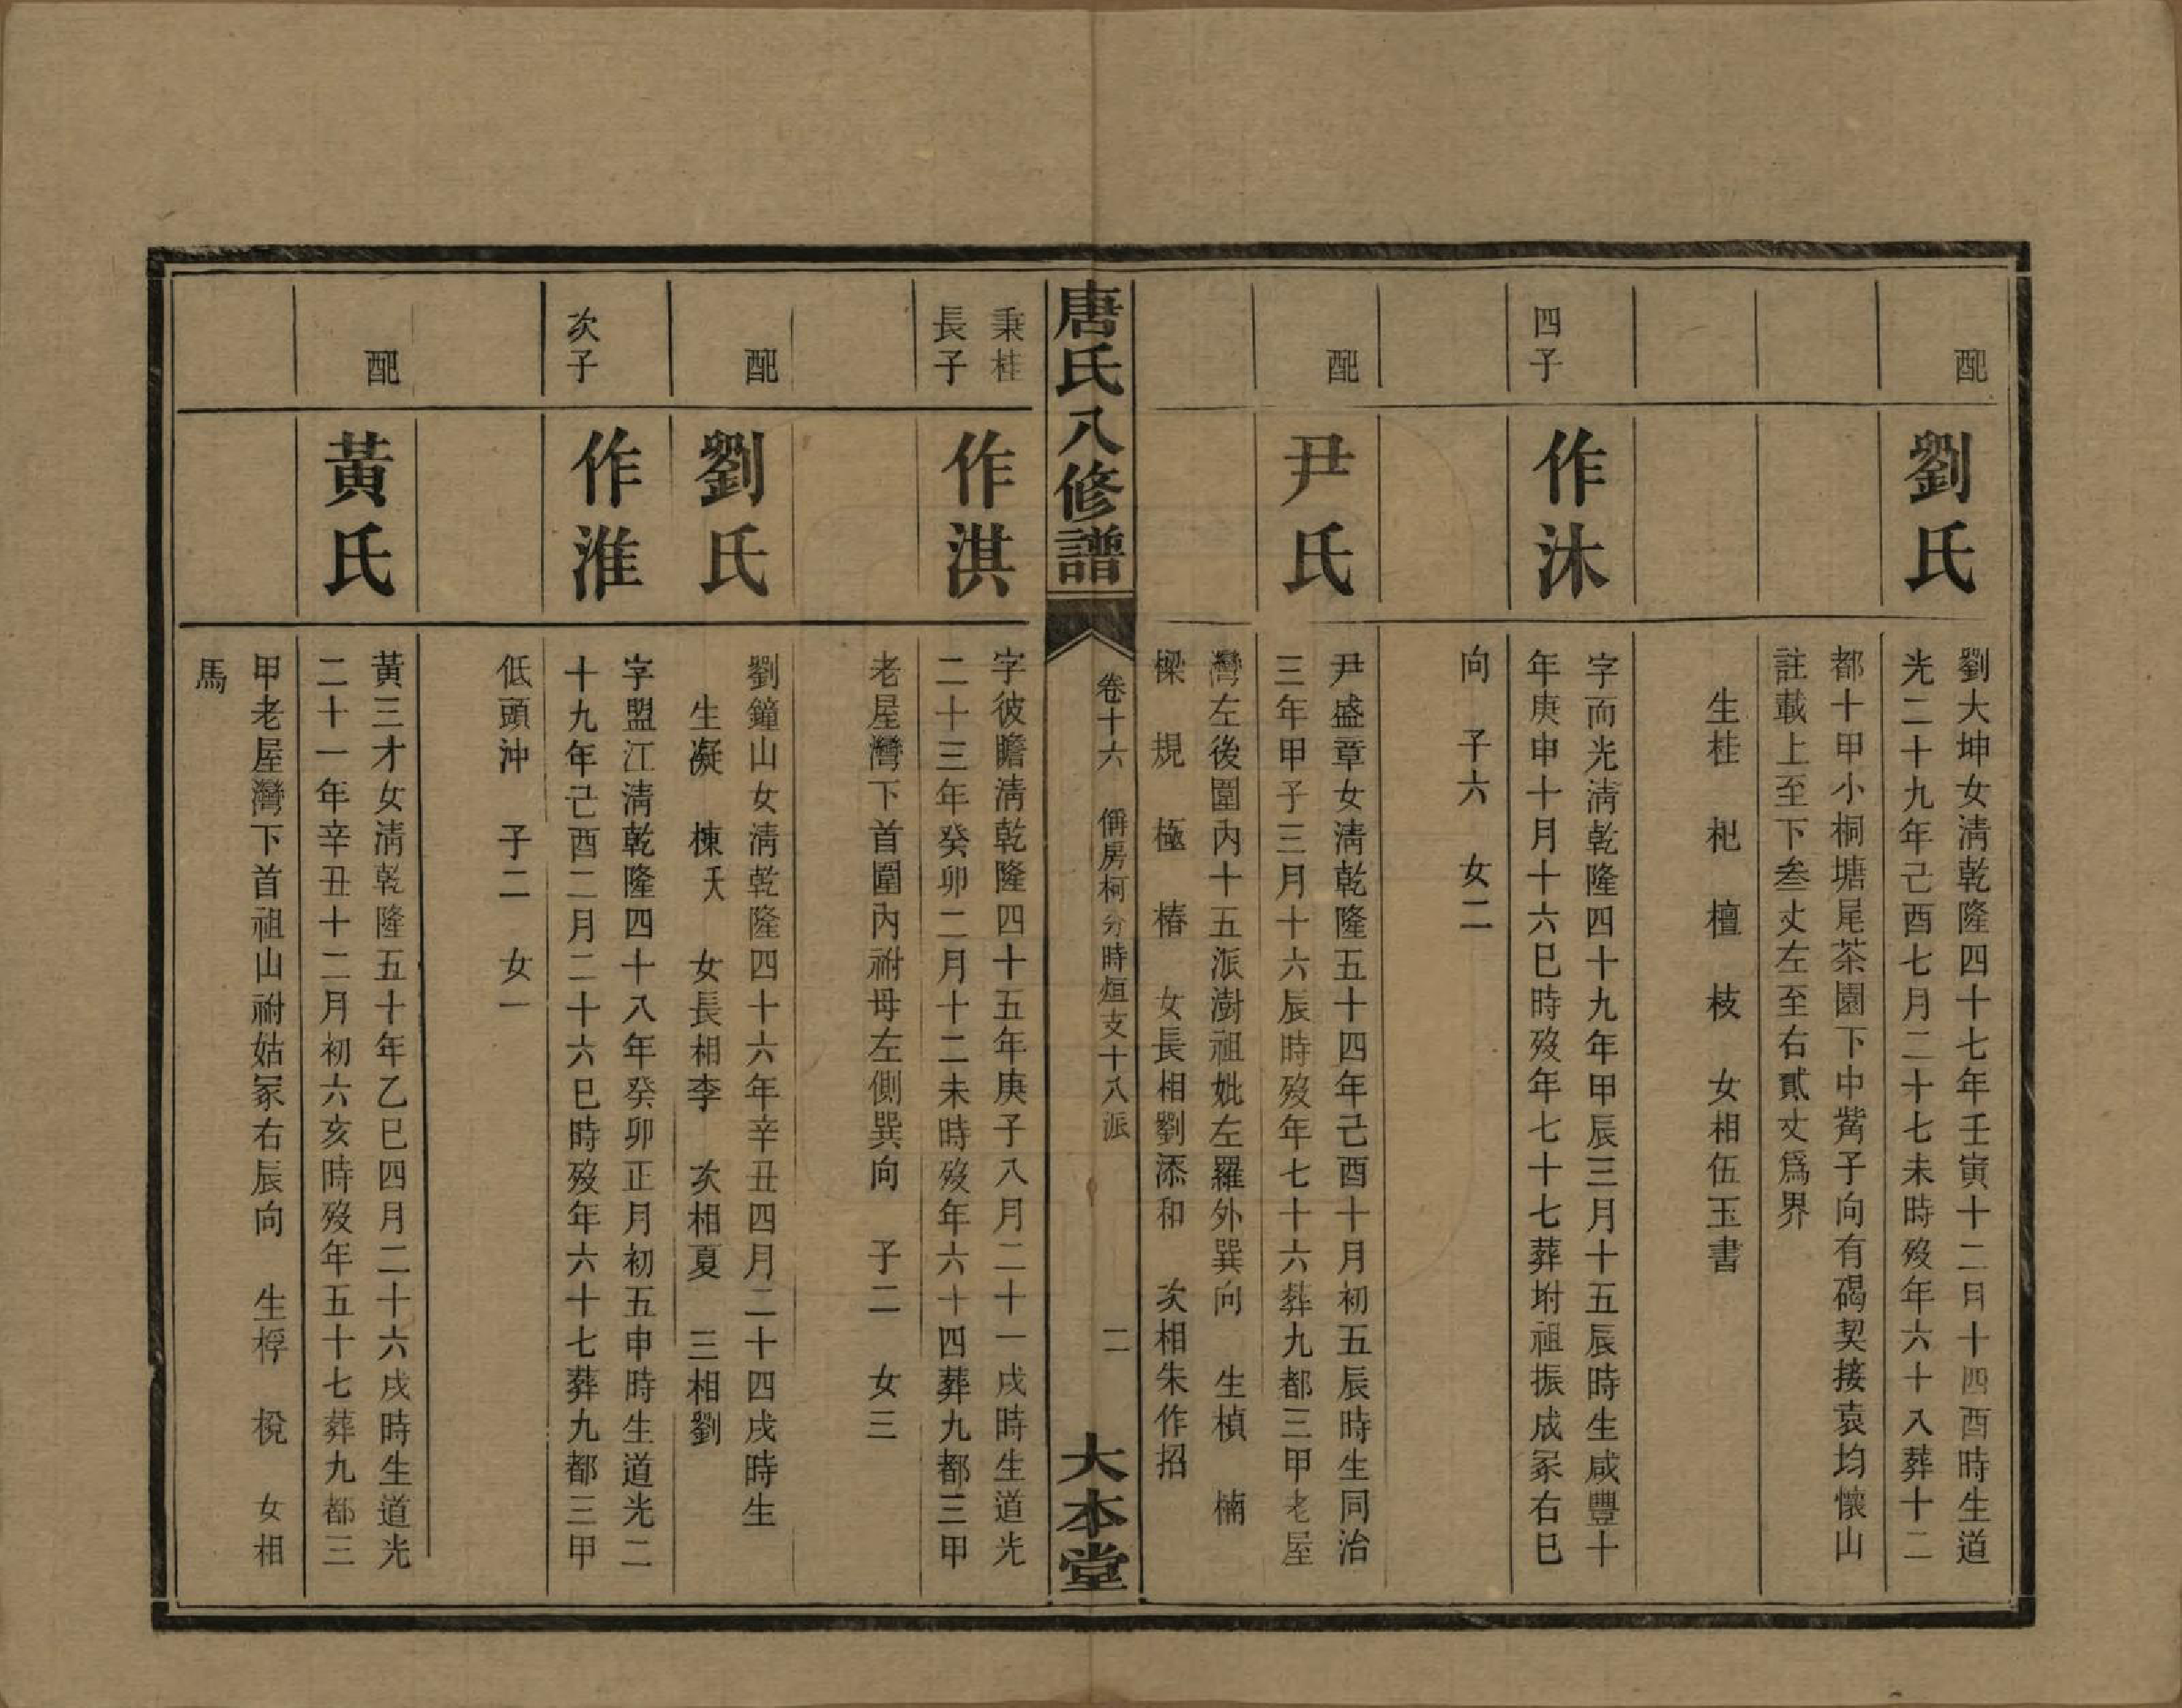 配
劉氏
劉大坤女淸乾隆四十七年壬寅十二月十四酉時生道
光二十九年己酉七月二十七未時歿年六十八葬十二
都十甲小桐塘尾茶園下中嘴子向有碣契接袁均懷山
註載上至下叁丈左至右貳丈爲界
生桂 杞 檀 枝 女相伍玉書
四子
作沐
字而光淸乾隆四十九年甲辰三月十五辰時生咸豐十
年庚申十月十六巳時歿年七十七葬坿祖振成冢右巳
向 子六 女二
配
尹氏
尹盛章女淸乾隆五十四年己酉十月初五辰時生同治
三年甲子三月十六辰時歿年七十六葬九都三甲老屋
灣左後圍內十五派澍祖妣左羅外巽向 生楨 楠
樑 規 極 椿 女長相劉添和 次相朱作招
唐氏八修譜
卷十六 偁房柯分時烜支十八派
二
大本堂
秉桂
長子
作淇
字彼瞻淸乾隆四十五年庚子八月二十一戌時生道光
二十三年癸卯二月十二未時歿年六十四葬九都三甲
老屋灣下首圍內祔母左側巽向 子二 女三
配
劉氏
劉鐘山女淸乾隆四十六年辛丑四月二十四戌時生
生凝 棟夭 女長相李 次相夏 三相劉
次子
作淮
字盟江淸乾隆四十八年癸卯正月初五申時生道光二
十九年己酉二月二十六巳時歿年六十七葬九都三甲
低頭沖 子二 女一
配
黃氏
黃三才女淸乾隆五十年乙巳四月二十六戌時生道光
二十一年辛丑十二月初六亥時歿年五十七葬九都三
甲老屋灣下首祖山祔姑冢右辰向 生桴 棁 女相
馬